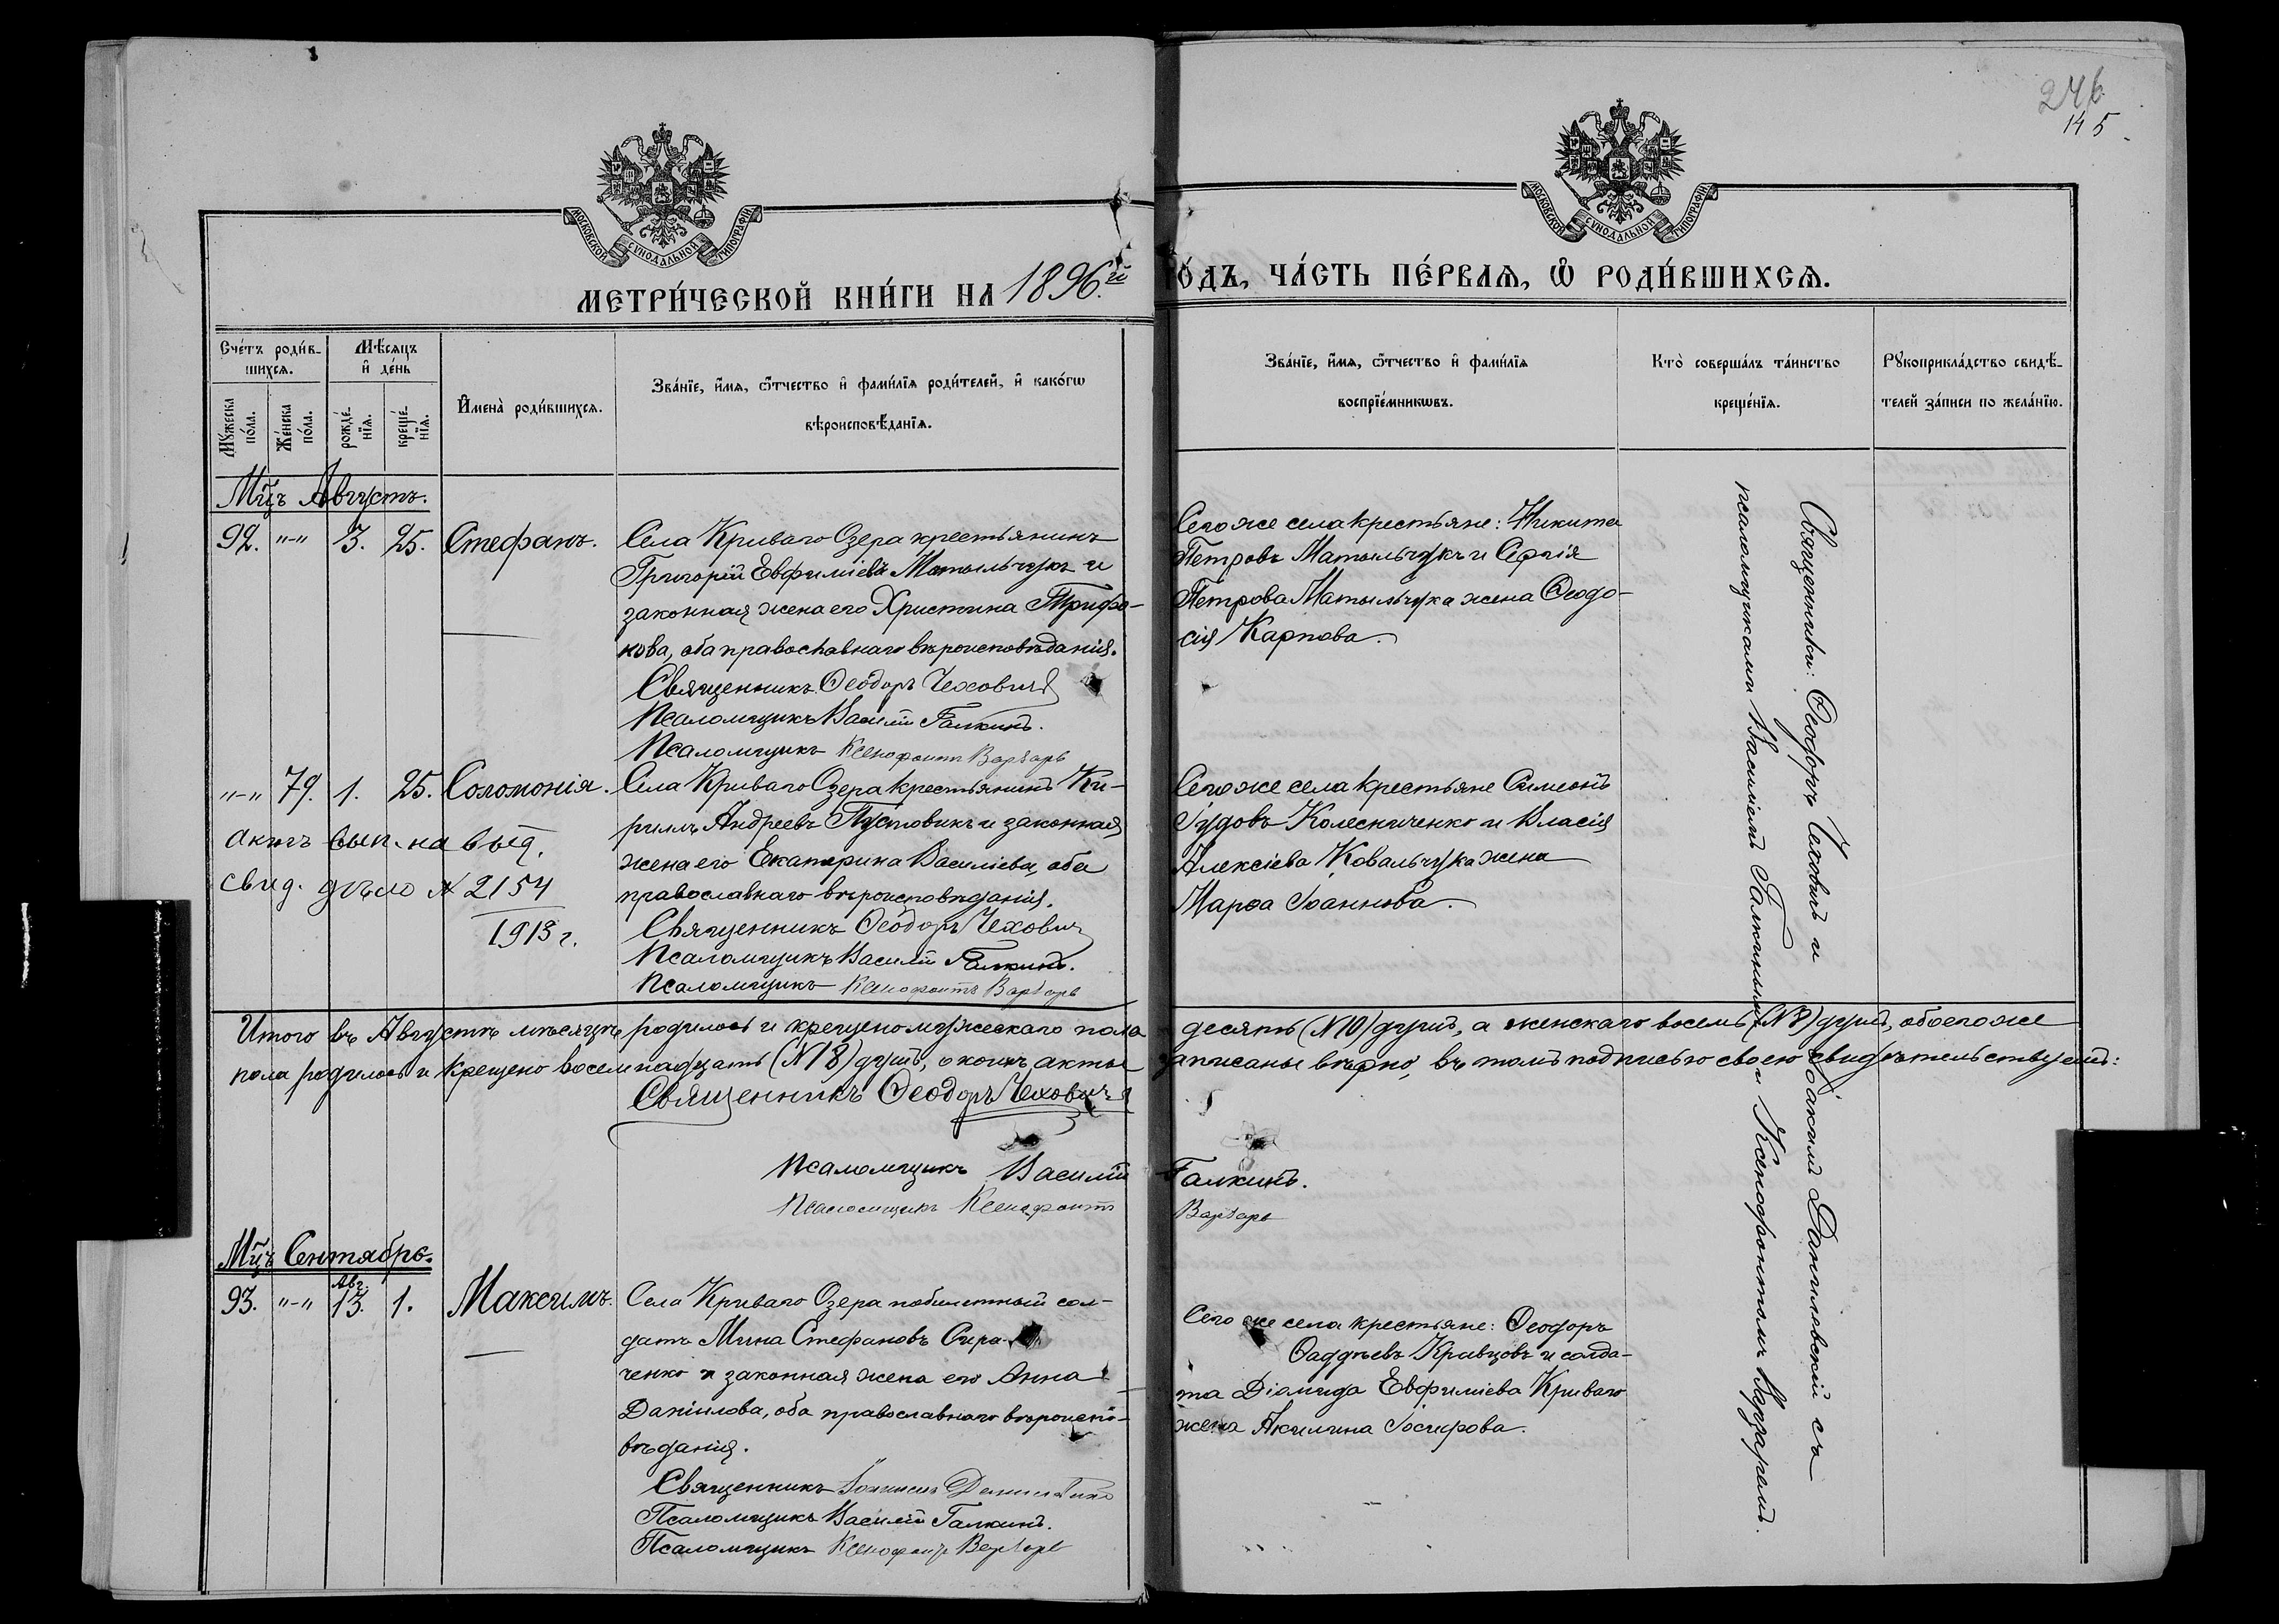 246.
145
МОСКОВСКОЙ СУНОДАЛЬНОЙ ТИПОГРАФІИ
МОСКОВСКОЙ СУНОДАЛЬНОЙ ТИПОГРАФІИ
МЕТРИ́ЧЕСКОЙ КНИ́ГИ НА 1896.й
ГО́ДЪ, ЧА́СТЬ ПЕ́РВАЯ, Ѿ РОДИ́ВШИХСЯ.
Сче́тъ роди́в-
шихся.
Мѣ́сяцъ
и҆ де́нь
Мꙋ́жеска
по́ла.
Же́нска
по́ла.
рожде́-
нїя.
креще́-
нїя.
И҆мена̀ роди́вшихся.
Зва́нїе, и҆́мя, ѻ҆́тчество и҆ фами́лїя роди́телей, и҆ како́гѡ
вѣроисповѣ́данїя.
Зва́нїе, и҆́мя, ѻ҆́тчество и҆ фами́лїя
воспрїе́мникѡвъ.
Кто̀ соверша́лъ та́инство
креще́нїя.
Рꙋкоприкла́дство свидѣ́-
телей за́писи по жела́нїю.
Мцъ Августъ.
92. "-" 3. 25. Стефанъ.
Села Криваго Озера крестьянинъ
Григорій Евфиміевъ Матыльчукъ и
законная жена его Христина Трифо-
нова, оба православнаго вѣроисповѣданія.
Священникъ Ѳеодоръ Чеховичъ
Псаломщикъ Василій Галкинъ.
Псаломщикъ Ксенофонтъ Варзарь
Сего же села крестьяне: Никита
Петровъ Матыльчукъ и Сергія
Петрова Матыльчука жена Ѳеодо-
сія Карпова.
"-" 79. 1. 25. Соломонія.
актъ вып. на выд.
свид. дѣло № 2154
1913 г.
Села Криваго Озера крестьянинъ Ки-
риллъ Андреевъ Пустовикъ и законная
жена его Екатерина Василіева, оба
православнаго вѣроисповѣданія.
Священникъ Ѳеодоръ Чеховичъ
Псаломщикъ Василій Галкинъ.
Псаломщикъ Ксенофонтъ Варзарь
Сего же села крестьяне Симеонъ
Іудовъ Колесниченко и Власія
Алексіева Ковальчука жена
Марѳа Іоаннова.
Итого въ Августѣ мѣсяцѣ родилось и крещено мужескаго пола десять (№10) душъ, а женскаго восемь (№8) душъ, обоего же
пола родилось и крещено восемнадцать (№18) душъ, о коихъ акты записаны вѣрно, въ томъ подписью своею свидѣтельствуемъ:
Священникъ Ѳеодоръ Чеховичъ
Псаломщикъ Василій Галкинъ.
Псаломщикъ Ксенофонтъ Варзарь
Мцъ Сентябрь.
93. "-" Авг. 13. 1. Максимъ.
Села Криваго Озера побилетный сол-
датъ Мина Стефановъ
ченко и законная жена его Анна
Даніилова, оба православнаго вѣроиспо-
вѣданія.
Священникъ Іоакимъ Данилевскій
Псаломщикъ Василій Галкинъ.
Псаломщикъ Ксенофонтъ Варзарь
Сего же села крестьяне: Ѳеодоръ
Ѳаддѣевъ Кравцовъ и солда-
та Діомида Евфиміева Криваго
жена Акилина Іосифова.
Священники: Ѳеодоръ Чеховичъ и Іоакимъ Данилевскій съ
псаломщиками Василіемъ Галкинымъ и Ксенофонтомъ Варзаремъ.